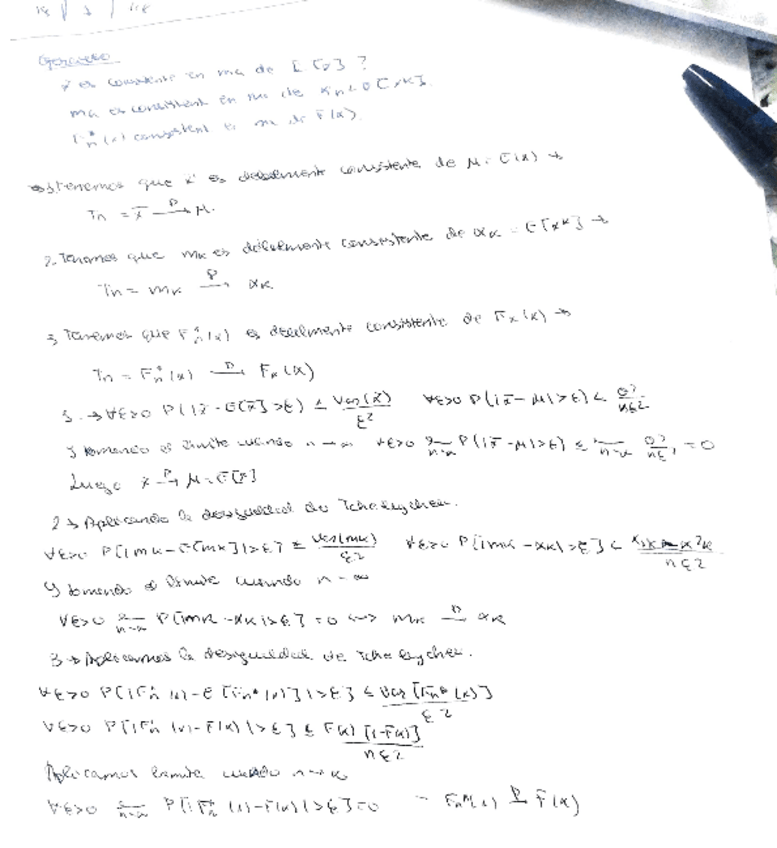 Ejercicio
x̄ es consistente en ma de E[x]?
ma es consistent en ma de αk = E[xᵏ]
Fn*(x) consistent en ma de F(x).
1. Tenemos que x̄ es debilmente consistente de μ = E(x) →
Tn = x̄ —P→ μ.
2. Tenemos que mk es debilmente consistente de αk = E[xᵏ] →
Tn = mk —P→ αk
3. Tenemos que Fn*(x) es debilmente consistente de Fx(x) →
Tn = Fn*(x) —P→ Fx(x)
1. → ∀ε>0 P(|x̄ - E[x̄]|>ε) ≤ Var(x̄)/ε² ∀ε>0 P(|x̄ - μ|>ε) ≤ σ²/nε²
Y tomando el limite cuando n→∞ ∀ε>0 lim n→∞ P(|x̄ - μ|>ε) ≤ lim n→∞ σ²/nε² = 0
Luego x̄ —P→ μ = E[x]
2 → Aplicando la desigualdad de Tchebychev.
∀ε>0 P[|mk - E[mk]|>ε] ≤ Var(mk)/ε² ∀ε>0 P[|mk - αk|>ε] ≤ α2k - α²k/nε²
Y tomando el limite cuando n→∞
∀ε>0 lim n→∞ P[|mk - αk|>ε] = 0 ⟺ mk —P→ αk
3 → Aplicamos la desigualdad de Tchebychev.
∀ε>0 P[|Fn*(x) - E[Fn*(x)]|>ε] ≤ Var[Fn*(x)]/ε²
∀ε>0 P[|Fn*(x) - F(x)|>ε] ≤ F(x)[1-F(x)]/nε²
Aplicamos limite cuando n→∞
∀ε>0 lim n→∞ P[|Fn*(x) - F(x)|>ε] = 0 - Fn*(x) —P→ F(x)